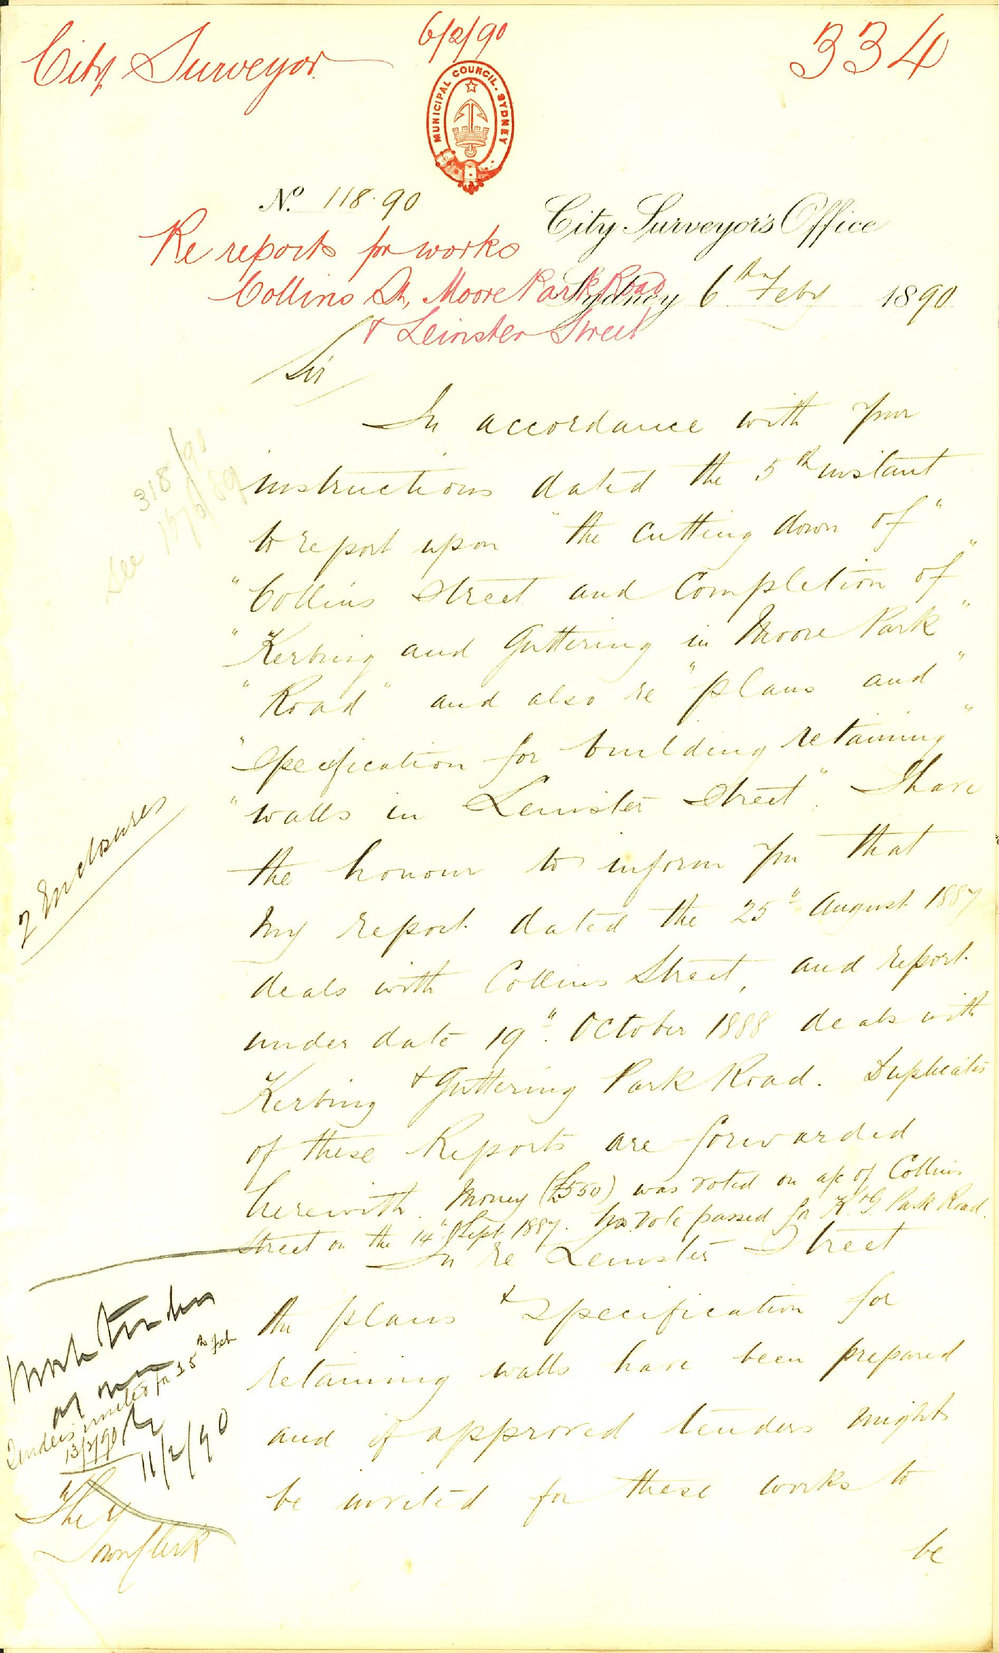 City Surveyor
6/2/90
334
MUNICIPAL COUNCIL. SYDNEY
No. 118.90
City Surveyor's Office
Re reports for works
Collins St, Moore Park Road
& Leinster Street
Sydney 6th Feby 1890
Sir
In accordance with your
instructions dated the 5th instant
to report upon "the cutting down of"
"Collins Street and Completion of"
"Kerbing and Guttering in Moore Park"
"Road" and also re "plans and"
"Specification for building retaining"
"walls in Leinster Street". I have
the honour to inform you that
my report dated the 25th August 1887
deals with Collins Street, and report
under date 19th October 1888 deals with
Kerbing & Guttering Park Road. Duplicates
of these Reports are forwarded
herewith. Money (£550) was voted on a/c of Collins
Street on the 14th Sept 1887. No vote passed for K & G Park Road.
In re Leinster Street
the plans & Specification for
retaining walls have been prepared
and if approved tenders might
be invited for these works to
be
See
318/90
2 Enclosures
Tenders invited for 25th Feb
13/2/90
11/2/90
The
Town Clerk